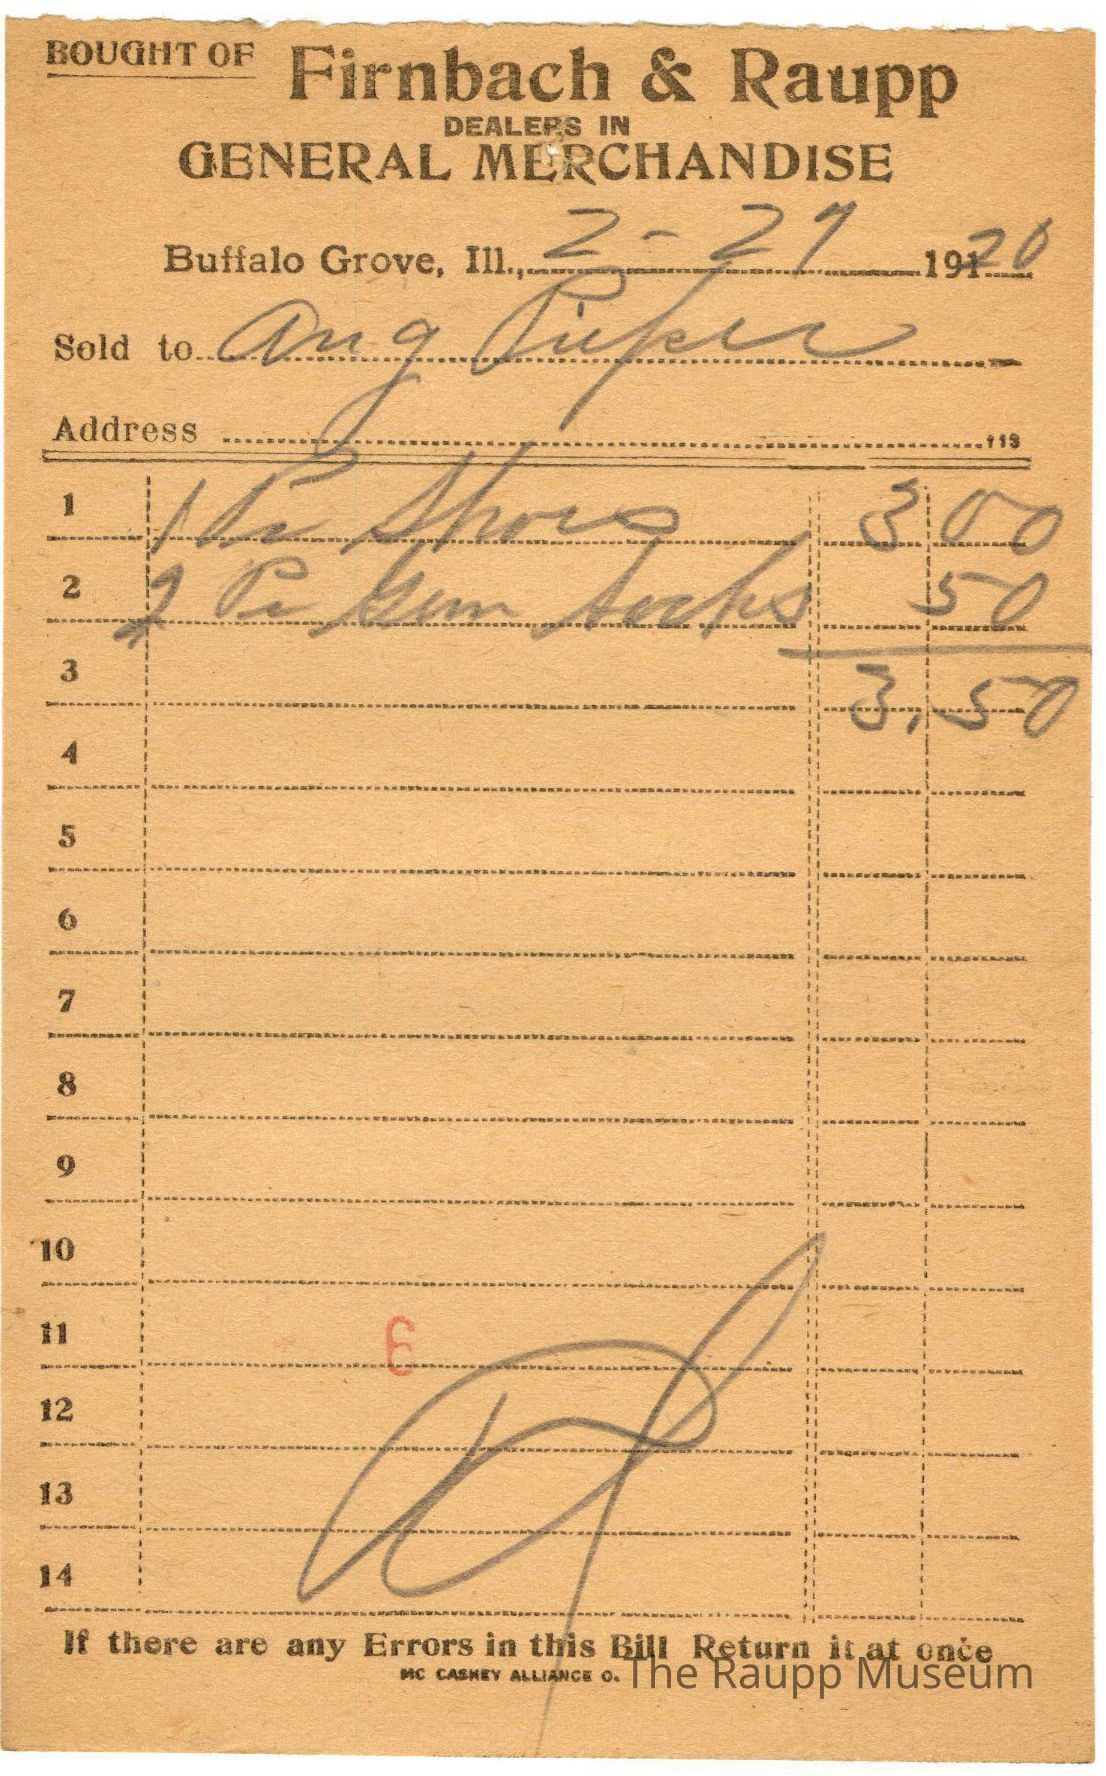 BOUGHT OF Firnbach & Raupp
DEALERS IN
GENERAL MERCHANDISE
Buffalo Grove, Ill., 2-27 19120
Sold to Aug Pieper
Address 113
1 1 Pr Shoes 3 00
2 2 Pr Socks 50
3 3.50
4
5
6
7
8
9
10
11 6
12
13
14
If there are any Errors in this Bill Return it at once
MC CASKEY ALLIANCE O.
The Raupp Museum